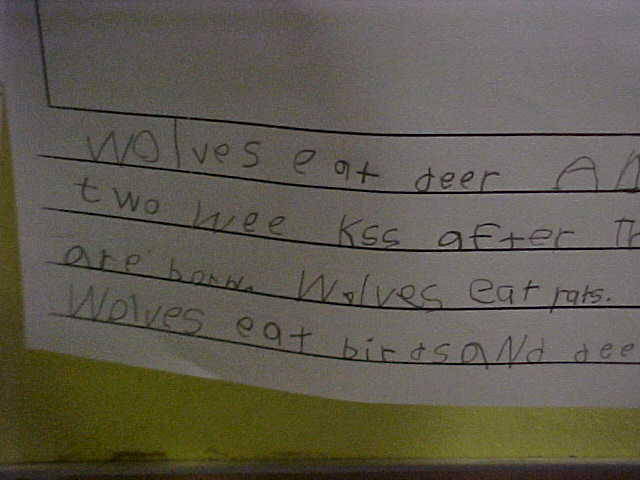 Wolves eat deer
two wee kss after
are born. Wolves eat rats.
Wolves eat birds aNd dee